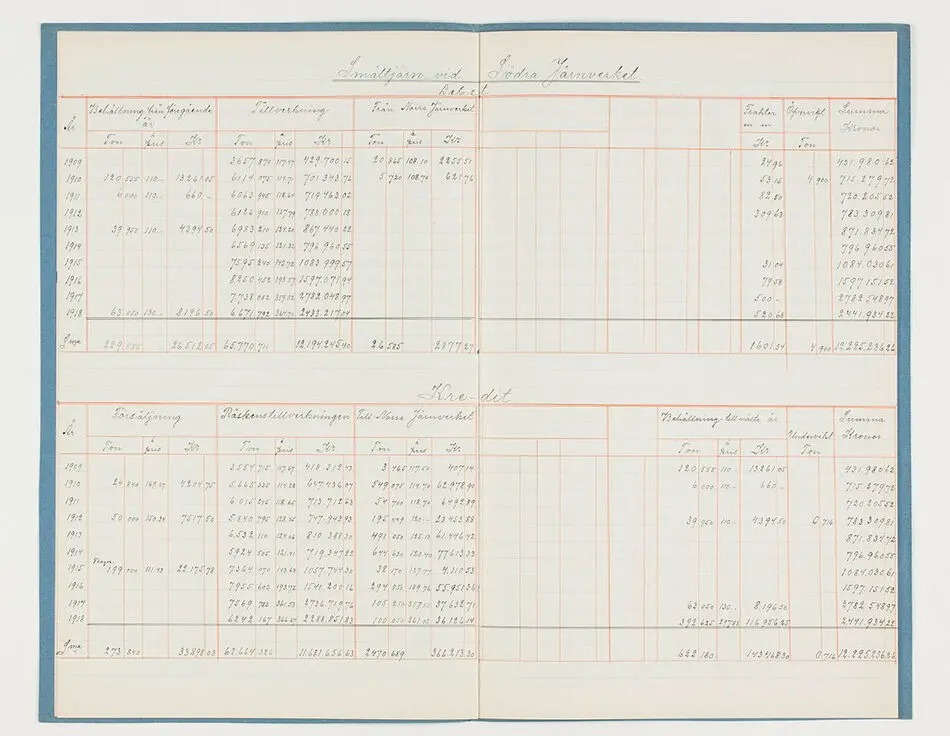 Smältjärn vid Södra Järnverket
Debet
År Behållning från föregående år Tillverkning Från Norra Järnverket Frakter m m Övervikt Summa Kronor
Ton à pris Kr Ton à pris Kr Ton à pris Kr Kr Ton
1909 3657 870 117.47 429.700 15 20 865 108.10 2255 51 24 96 431.980 62
1910 120 555 110.- 13261 05 6114 075 114.71 701343 76 5 720 108.70 621 76 53 15 4 900 715.279 72
1911 6 000 110.- 660.- 6063 945 118.64 719463 02 82 50 720.205 52
1912 6126 910 127.79 783.000 18 309 63 783 309 81
1913 39 950 110.- 4394 50 6983 210 124.20 867 440 22 871.834 72
1914 6569 135 121.32 796 960 55 796 960 55
1915 7595 240 142.72 1083 999 57 31 04 1084 030 61
1916 8250 452 193.57 1597 071 94 79 58 1597 151 52
1917 7.738 052 359.52 2782 048 97 500.- 2782 548 97
1918 63 050 130.- 8196 50 6.671 792 364.71 2433 217 04 520 68 2441.934 22
Sma 229 555 26 512 05 65.770 711 12.194 245 40 26 585 2877 27 1601 54 4 900 12.225.236 26
Kredit
År Försäljning Råskenstillverkningen Till Norra Järnverket Behållning till nästa år Undervikt Summa Kronor
Ton à pris Kr Ton à pris Kr Ton à pris Kr Ton à pris Kr Ton
1909 3554 715 117.67 418 312 43 3 465 117.50 407 14 120 555 110.- 13261 05 431.980 62
1910 24 840 169.27 4204 75 5665 114.28 647 436 07 549 075 114.70 62 978 90 6 000 110.- 660.- 715.279 72
1911 6015 118.65 713 712 63 54 700 118.70 6492 89 720.205 52
1912 50 000 150.34 7517 50 5.840 795 747 943 93 195 449 120.- 23 453 88 39 950 110.- 4394 50 0 716 783.309 81
1913 6.532 110 810.388 30 491 050 125.13 61.446 42 871.834 72
1914 5924 505 121.41 719.347 22 644 630 120.40 77613 33 796.960 55
1915 199 000 111.43 22.175 78 7364 070 143.63 1057.744 30 32 170 127.77 4.110 53 1084.030 61
1916 7955 602 193.72 1541.200 16 294 850 189.76 55.951 36 1597.151 52
1917 7569 782 361.53 2736.719 76 105 220 357.65 37.632 71 63 050 130.- 8.196 50 2782.548 97
1918 6242 167 366.67 2288.851 83 100 050 361.08 36 126 14 392 525 116.956 25 2441.934 22
Sma 273 840 33.898 03 62.664 326 11.681.656 63 2470 689 366 213 30 622 180 143.468 30 0.716 12.225.236 26